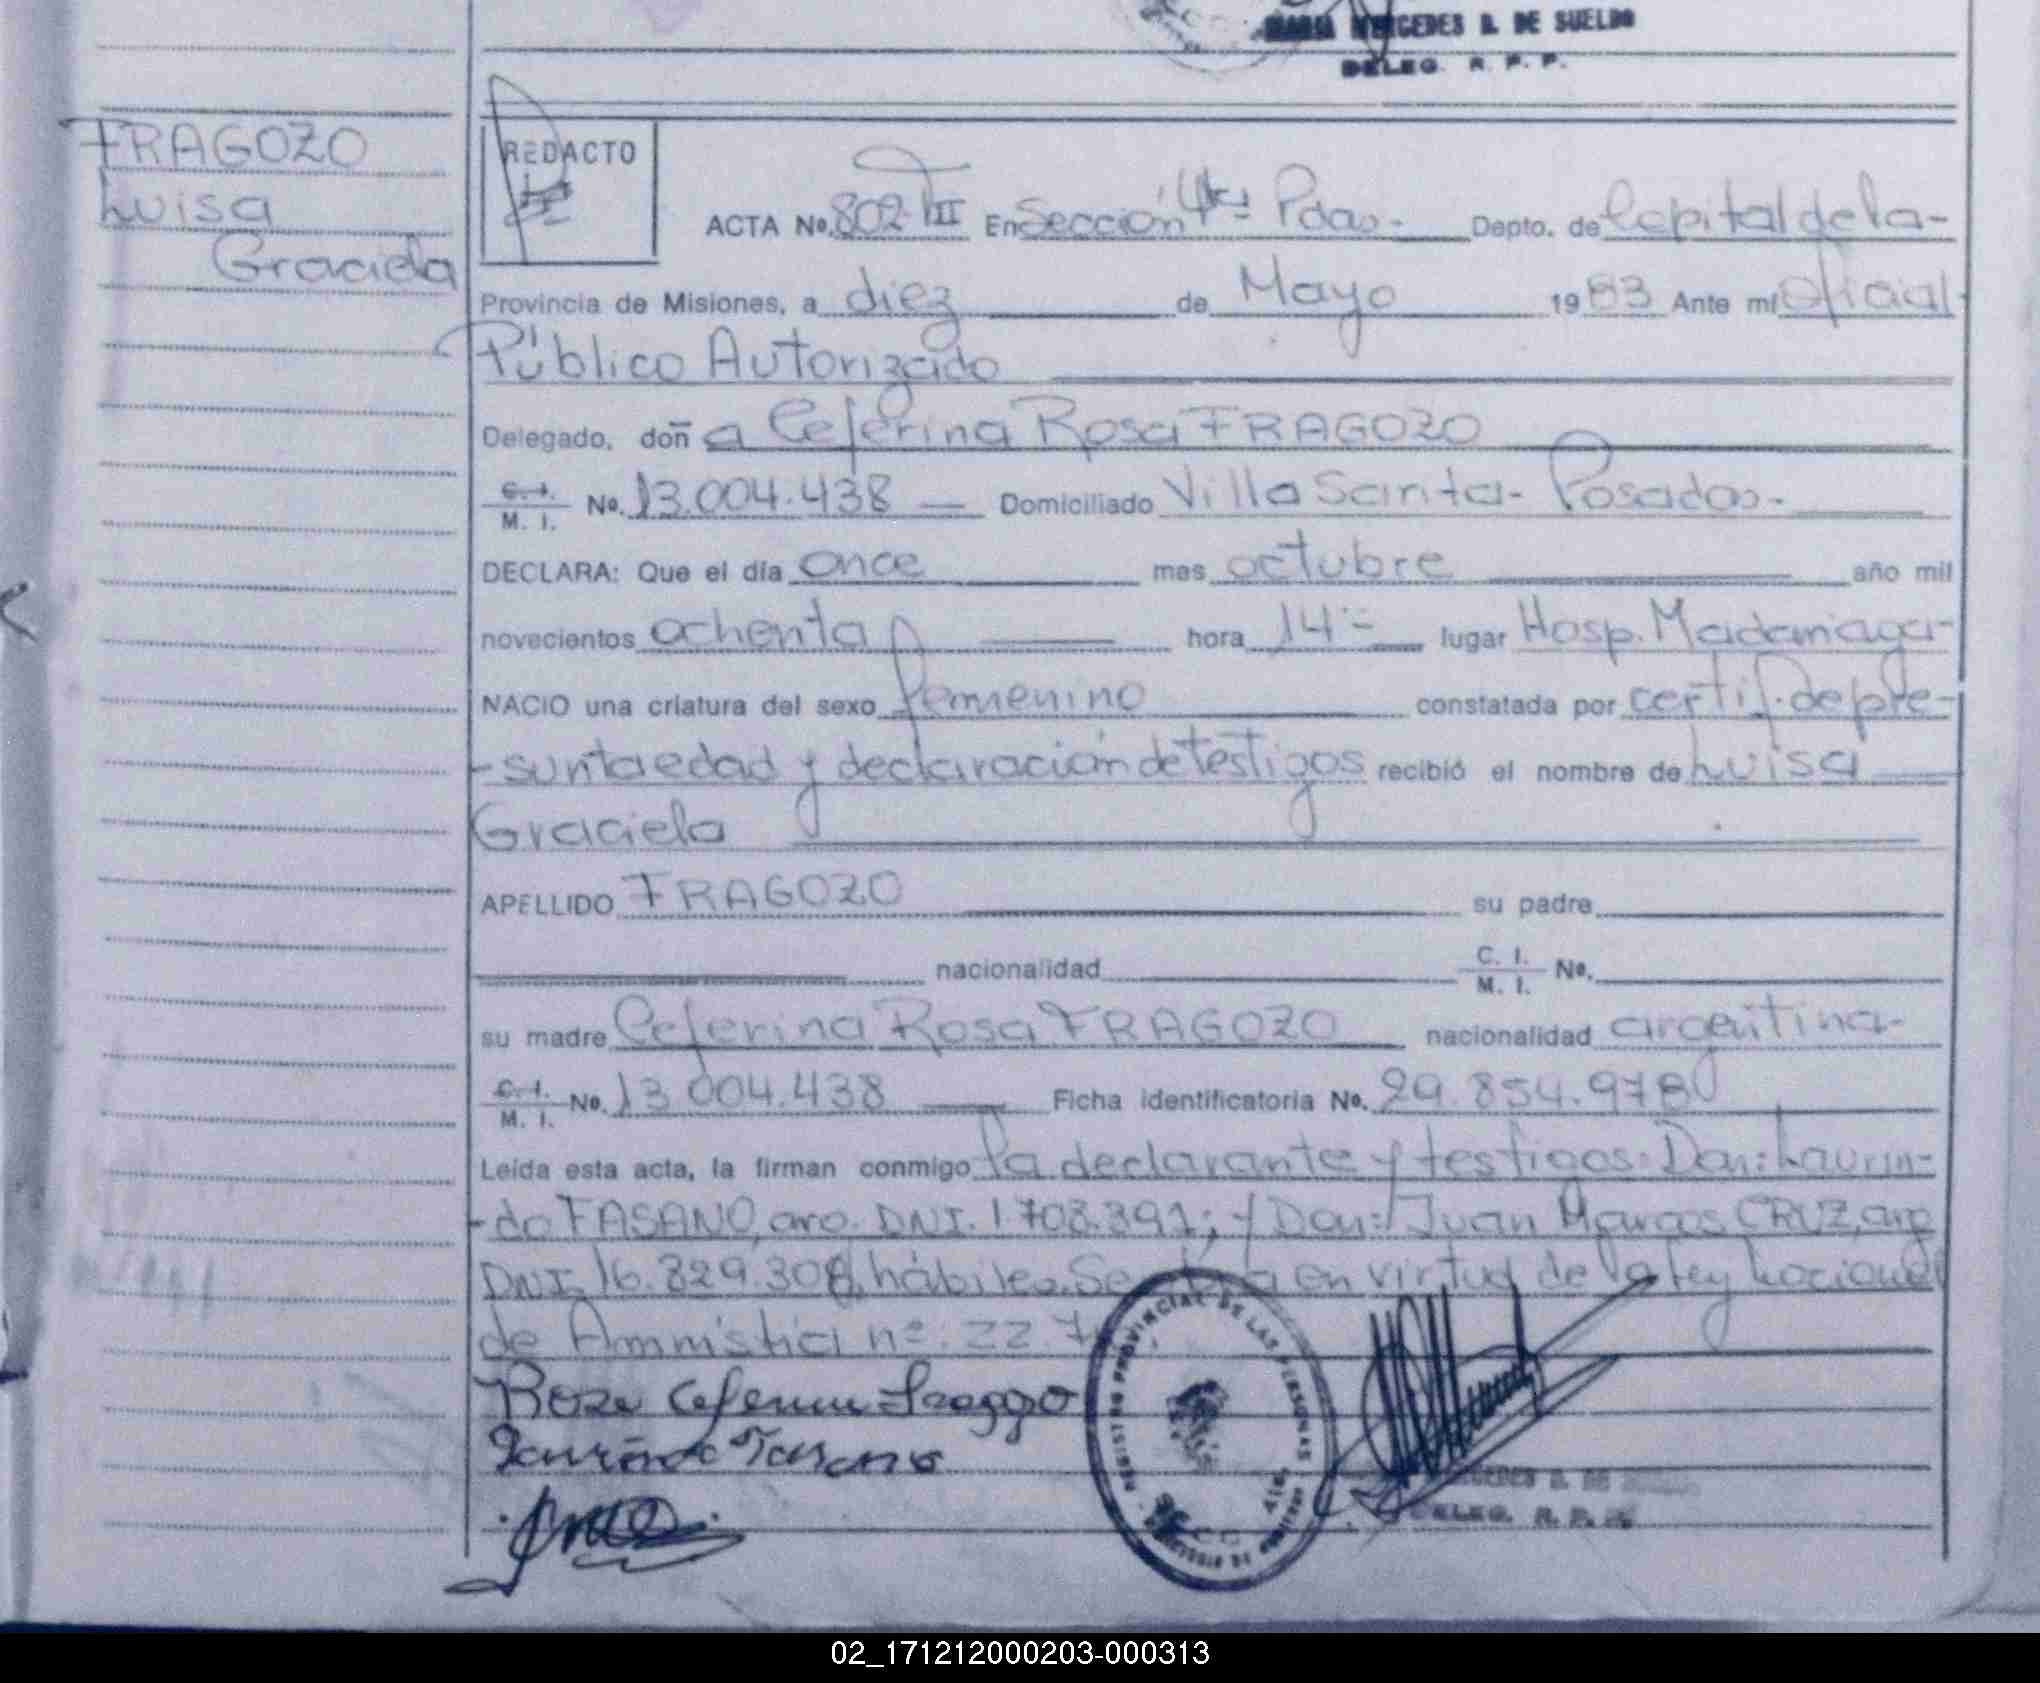 MARIA MERCEDES B. DE SUELDO
DELEG. R. P. P.
FRAGOZO
Luisa
Graciela
REDACTO
ACTA No. 802 TIII En Sección 4ta Pdas.- Depto. de Capital de la-
Provincia de Misiones, a diez de Mayo 1983 Ante mí Oficial
Público Autorizado
Delegado, doña Ceferina Rosa FRAGOZO
C. I. M. I. No. 13.004.438 Domiciliado Villa Sarita- Posadas-
DECLARA: Que el día once mes octubre año mil
novecientos ochenta hora 14- lugar Hosp. Madariaga-
NACIO una criatura del sexo femenino constatada por certif. de pre-
-sunta edad y declaración de testigos recibió el nombre de Luisa
Graciela
APELLIDO FRAGOZO su padre
nacionalidad C. I. M. I. No.
su madre Ceferina Rosa FRAGOZO nacionalidad argentina-
C. I. M. I. No. 13.004.438 Ficha identificatoria No. 29.854.978
Leída esta acta, la firman conmigo la declarante y testigos: Don: Laurin-
-do FASANO, arg. DNI. 1.708.391; y Don: Juan Marcos CRUZ, arg
DNI. 16.829.308, hábiles. en virtud de la Ley Nacional
de Amnistia nº: 22.7
Roza Ceferina Fragozo
Laurindo Fasano
REGISTRO PROVINCIAL DE LAS PERSONAS
DELEG. R. P. P.
02_171212000203-000313